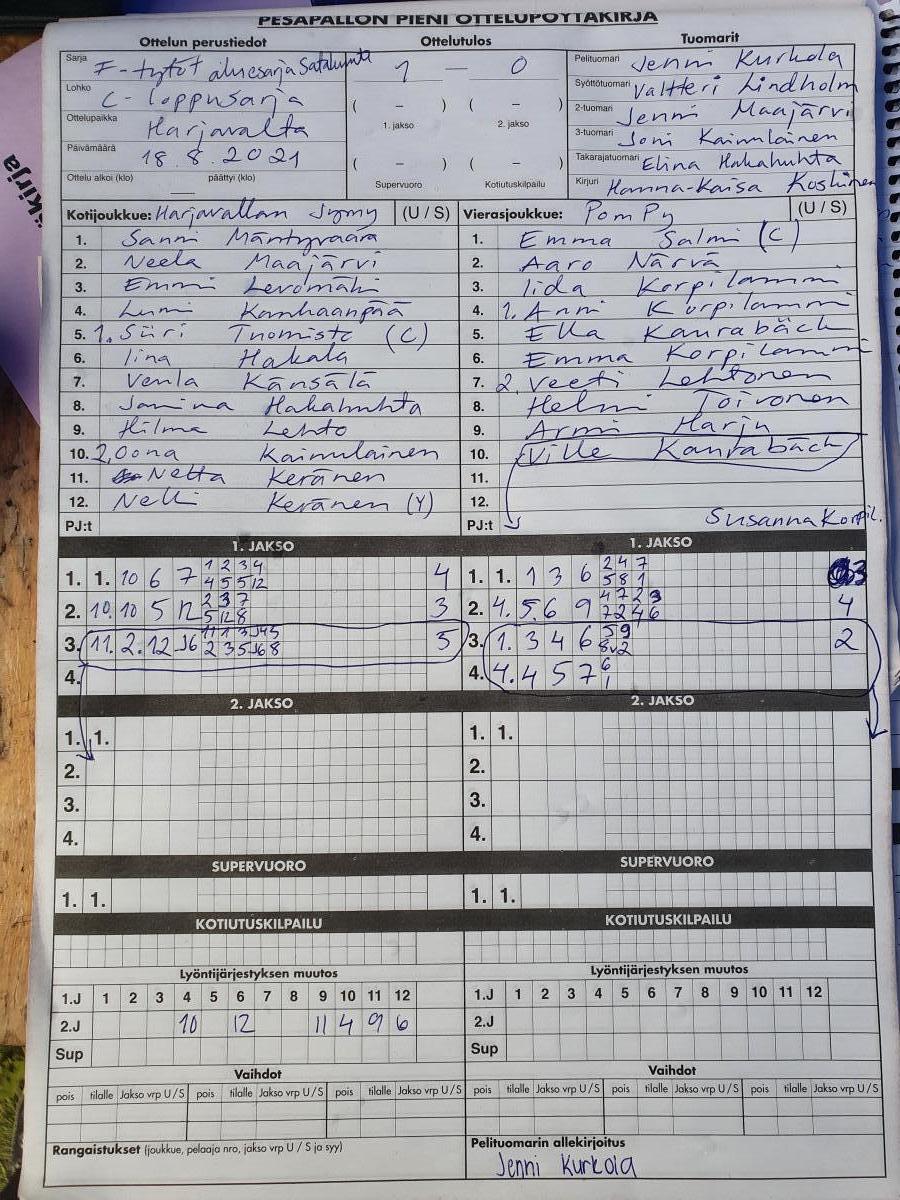 PESÄPALLON PIENI OTTELUPÖYTÄKIRJA
Ottelun perustiedot
Sarja F-tytöt aluesarja Satakunta
Lohko C-loppusarja
Ottelupaikka Harjavalta
Päivämäärä 18.8.2021
Ottelu alkoi (klo) päättyi (klo)
Ottelutulos
1 — 0
( – ) ( – )
1. jakso 2. jakso
( – ) ( – )
Supervuoro Kotiutuskilpailu
Tuomarit
Pelituomari Jenni Kurkola
Syöttötuomari Valtteri Lindholm
2-tuomari Jenni Maajärvi
3-tuomari Joni Kainulainen
Takarajatuomari Elina Hakahuhta
Kirjuri Hanna-Kaisa Koskinen
Kotijoukkue: Harjavallan Jymy (U / S)
1. Sanni Mäntyvaara
2. Neela Maajärvi
3. Emmi Levomäki
4. Lumi Kanhaanpää
5. 1. Siiri Tuomisto (C)
6. Iina Hakala
7. Venla Känsälä
8. Janina Hakahuhta
9. Hilma Lehto
10. 2. Oona Kainulainen
11. Netta Keränen
12. Nelli Keränen (Y)
PJ:t
Vierasjoukkue: PomPy (U / S)
1. Emma Salmi (C)
2. Aaro Närvä
3. Iida Korpilammi
4. 1. Anni Korpilammi
5. Ella Kaurabäck
6. Emma Korpilammi
7. 2. Veeti Lehtonen
8. Helmi Toivonen
9. Armi Harju
10. Ville Kaurabäck
11.
12.
PJ:t Susanna Korpil.
1. JAKSO
1 2 3 4
1. 1. 10 6 7 4 5 5 12 4
2 3 7
2. 10. 10 5 12 5 12 8 3
3. 11. 2. 12 J6 2 3 5 J6 8 5
4.
1. JAKSO
2 4 7
1. 1. 1 3 6 5 8 1 3
4 7 2 3
2. 4. 5. 6 9 7 2 4 6 4
5 9
3. 1. 3 4 6 2
6
4. 4. 4 5 7 1
2. JAKSO
1. 1.
2.
3.
4.
2. JAKSO
1. 1.
2.
3.
4.
SUPERVUORO
1. 1.
SUPERVUORO
1. 1.
KOTIUTUSKILPAILU
KOTIUTUSKILPAILU
Lyöntijärjestyksen muutos
1.J 1 2 3 4 5 6 7 8 9 10 11 12
2.J 10 12 11 4 9 6
Sup
Lyöntijärjestyksen muutos
1.J 1 2 3 4 5 6 7 8 9 10 11 12
2.J
Sup
Vaihdot
pois tilalle Jakso vrp U / S pois tilalle Jakso vrp U / S pois tilalle Jakso vrp U / S
Vaihdot
pois tilalle Jakso vrp U / S pois tilalle Jakso vrp U / S pois tilalle Jakso vrp U / S
Rangaistukset (joukkue, pelaaja nro, jakso vrp U / S ja syy)
Pelituomarin allekirjoitus
Jenni Kurkola